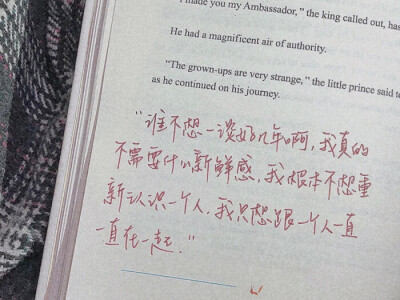 made you my Ambassador," the king called out, has
He had a magnificent air of authority.
"The grown-ups are very strange," the little prince said to
as he continued on his journey.
"谁不想一谈好几年啊,我真的
不需要什么新鲜感,我根本不想重
新认识一个人,我只想跟一个人一直
一直在一起."